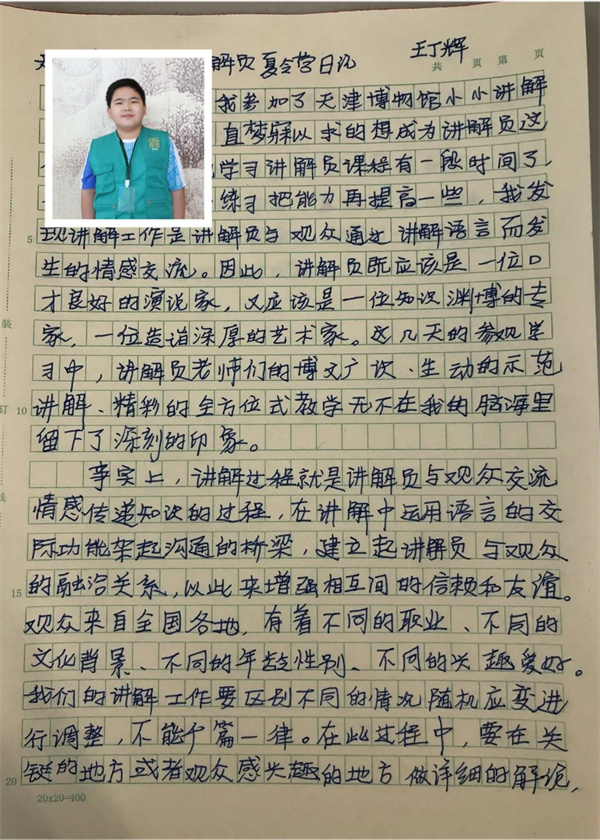 解员夏令营日记 王丁辉
共 页 第 页
我参加了天津博物馆小小讲解
直梦寐以求的想成为讲解员这
学习讲解员课程有一段时间了,
练习把能力再提高一些,我发
5 现讲解工作是讲解员与观众通过讲解语言而发
生的情感交流。因此,讲解员既应该是一位口
才良好的演说家,又应该是一位知识渊博的专
家,一位造诣深厚的艺术家。这几天的参观学
装
习中,讲解员老师们的博文广识、生动的示范
订 10 讲解、精彩的全方位式教学无不在我的脑海里
留下了深刻的印象。
事实上,讲解过程就是讲解员与观众交流
线
情感传递知识的过程,在讲解中运用语言的交
际功能架起沟通的桥梁,建立起讲解员与观众
15 的融洽关系,以此来增强相互间的信赖和友谊。
观众来自全国各地,有着不同的职业、不同的
文化背景、不同的年龄性别、不同的兴趣爱好。
我们的讲解工作要区别不同的情况随机应变进
行调整,不能千篇一律。在此过程中,要在关
20 键的地方或者观众感兴趣的地方做详细的解说,
20×20=400